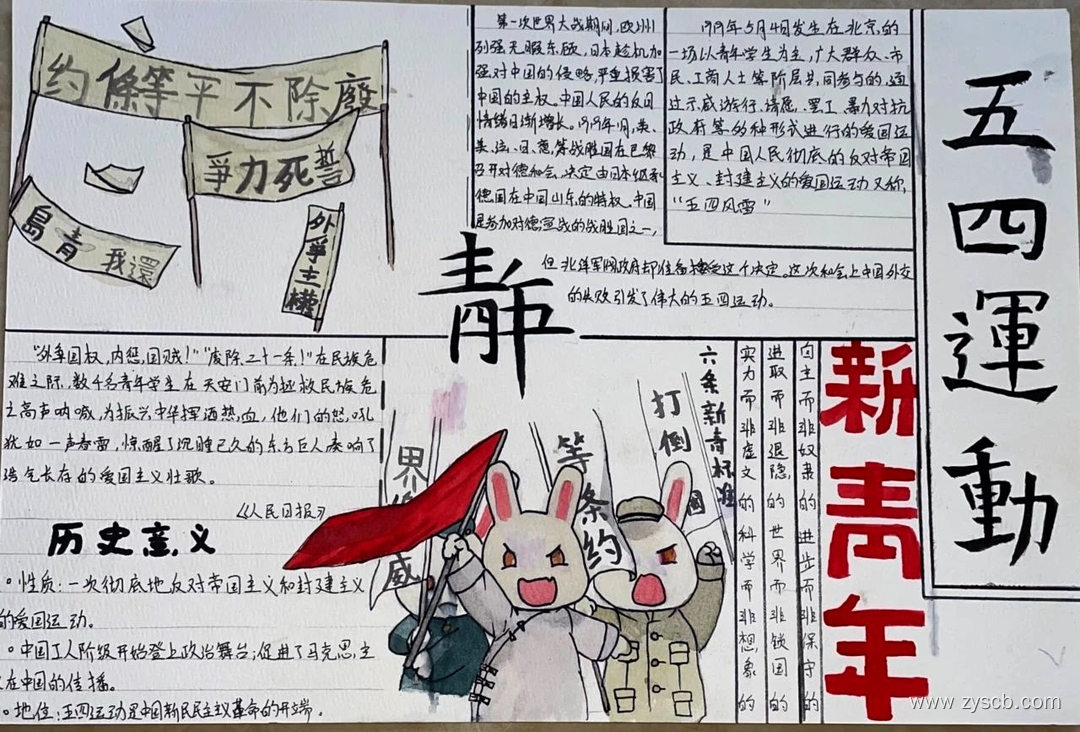 五四運動
约條等平不除廢
爭力死誓
島青我還
外爭主權
第一次世界大战期间,欧洲
列强无暇东顾,日本趁机加
强对中国的侵略,严重损害了
中国的主权。中国人民的反日
情绪日渐增长。1919年1月,美、
英、法、日、意等战胜国在巴黎
召开对德和会,决定由日本继承
德国在中国山东的特权。中国
是参加对德宣战的战胜国之一,
但北洋军阀政府却准备接受这个决定。这次和会上中国外交
的失败引发了伟大的五四运动。
1919年5月4日发生在北京的
一场以青年学生为主,广大群众、市
民、工商人士等阶层共同参与的,通
过示威游行、请愿、罢工、暴力对抗
政府等多种形式进行的爱国运
动,是中国人民彻底的反对帝国
主义、封建主义的爱国运动又称,
“五四风雷”
青年
“外争国权,内惩国贼!”“废除二十一条!”在民族危
难之际,数千名青年学生在天安门前为拯救民族危
亡高声呐喊,为振兴中华挥洒热血,他们的怒吼
犹如一声春雷,惊醒了沉睡已久的东方巨人奏响了
浩气长存的爱国主义壮歌。
《人民日报》
历史意义
。性质:一次彻底地反对帝国主义和封建主义
的爱国运动。
。中国工人阶级开始登上政治舞台;促进了马克思主
义在中国的传播。
。地位:五四运动是中国新民民主义革命的开端。
界
威
等条约
打倒
國
六条新青标准
自主而非奴隶的 进步而非保守的
进取而非退隐的 世界而非锁国的
实力而非虚文的 科学而非想象的
新青年
www.zyscb.com